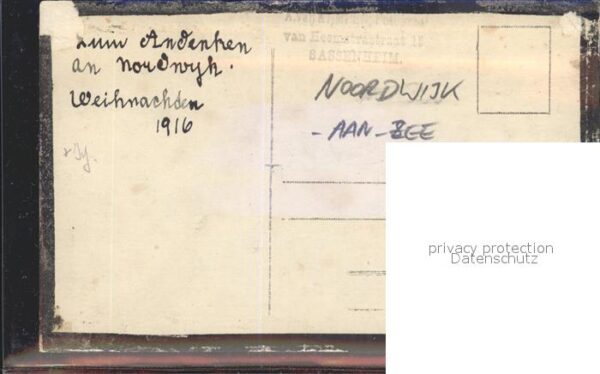 Zum Andenken
an Nordwyk.
Weihnachden
1916
van Heemstrastraat 15
SASSENHEIM.
NOORDWIJK
-AAN-ZEE
privacy protection
Datenschutz